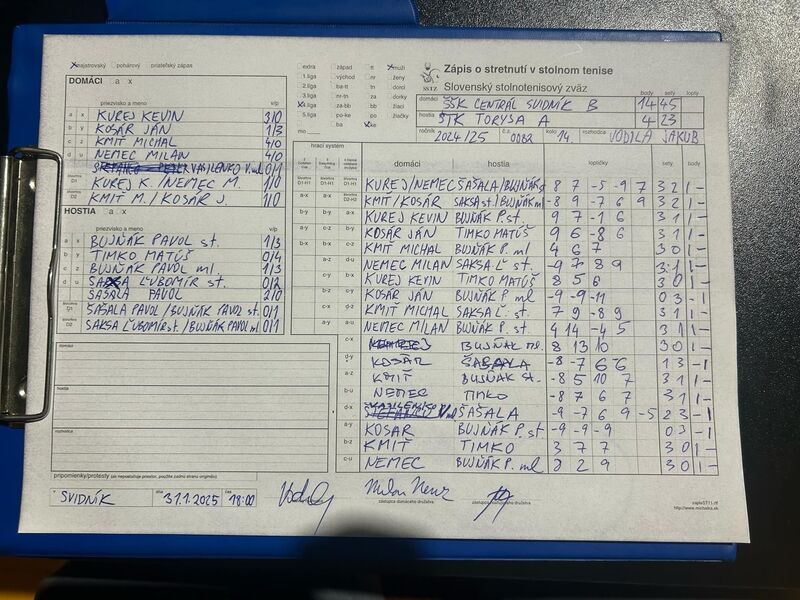 x majstrovský pohárový priateľský zápas
DOMÁCI a x
priezvisko a meno v/p
a x KUREJ KEVIN 3/0
b y KOSÁR JÁN 1/3
c z KMIŤ MICHAL 4/0
d u NEMEC MILAN 4/0
VASILENKO Vml 0/1
štvorhra D1 KUREJ K. / NEMEC M. 1/0
štvorhra D2 KMIŤ M. / KOSÁR J. 1/0
HOSTIA a x
priezvisko a meno v/p
a x BUJŇÁK PAVOL st. 1/3
b y TIMKO MATÚŠ 0/4
c z BUJŇÁK PAVOL ml. 1/3
d u SAKSA ĽUBOMÍR st. 0/2
ŠAŠALA PAVOL 2/0
štvorhra D1 ŠAŠALA PAVOL / BUJŇÁK PAVOL st. 0/1
štvorhra D2 SAKSA ĽUBOMÍR st. / BUJŇÁK PAVOL ml 0/1
domáci
hostia
rozhodca
pripomienky/protesty (ak nepostačuje priestor, použite zadnú stranu originálu)
SVIDNÍK dňa 31.1.2025 čas 18:00
extra západ tt x muži
1.liga východ nr ženy
2.liga ba-tt tn dorci
3.liga nr-tn za dorky
x 4.liga za-bb bb žiaci
5.liga po-ke po žiačky
mo ba x ke
Zápis o stretnutí v stolnom tenise
SSTZ Slovenský stolnotenisový zväz
body sety lopty
domáci ŠŠK CENTRÁL SVIDNÍK B 14 45
hostia ŠTK TORYSA A 4 23
ročník 2024/25 č.z. 0082 kolo 14. rozhodca VODILA JAKUB
hrací systém
domáci hostia loptičky sety body
KUREJ/NEMEC ŠAŠALA/BUJŇÁK 8 7 -5 -9 7 3 2 1 -
KMIŤ/KOSÁR SAKSA st./BUJŇÁK ml -8 9 -7 6 9 3 2 1 -
KUREJ KEVIN BUJŇÁK P. st. 9 7 -1 6 3 1 1 -
KOSÁR JÁN TIMKO MATÚŠ 9 6 -8 6 3 1 1 -
KMIŤ MICHAL BUJŇÁK P. ml 4 6 7 3 0 1 -
NEMEC MILAN SAKSA Ľ. st. -9 7 8 9 3 1 1 -
KUREJ KEVIN TIMKO MATÚŠ 8 5 6 3 0 1 -
KOSÁR JÁN BUJŇÁK P. ml -9 -9 -11 0 3 - 1
KMIŤ MICHAL SAKSA Ľ. st. 7 9 -8 9 3 1 1 -
NEMEC MILAN BUJŇÁK P. st 4 14 -4 5 3 1 1 -
c-x BUJŇÁK ml. 8 13 10 3 0 1 -
d-y KOSÁR ŠAŠALA -8 -7 6 -6 1 3 - 1
a-z KMIŤ BUJŇÁK st. -8 5 10 7 3 1 1 -
b-u NEMEC TIMKO -8 7 6 7 3 1 1 -
d-x VASILENKO ŠAŠALA -9 -7 6 9 -5 2 3 - 1
a-y KOSÁR BUJŇÁK P. st. -9 -9 -9 0 3 - 1
b-z KMIŤ TIMKO 3 7 7 3 0 1 -
c-u NEMEC BUJŇÁK P. ml 8 2 9 3 0 1 -
zástupca domáceho družstva
zástupca hosťovského družstva
zapisST11.rtf
http://www.michalka.sk